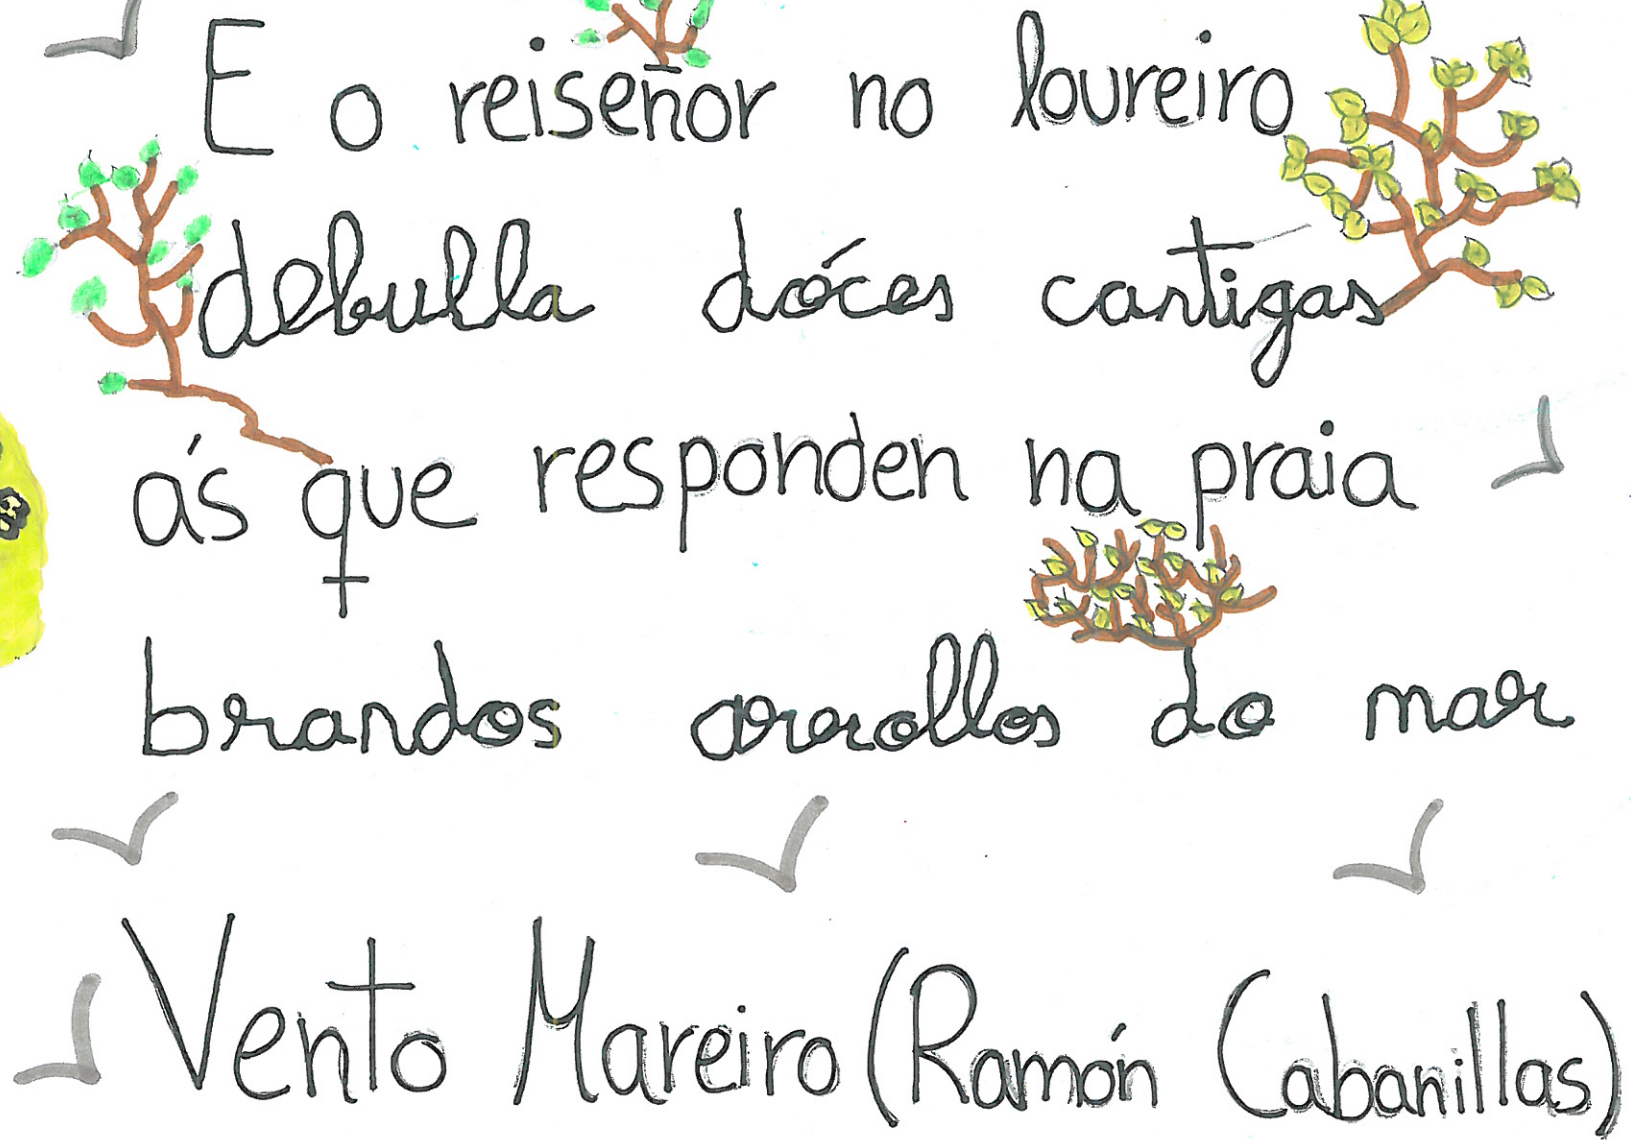 E o reiseñor no loureiro
debulla dóces cantigas
ás que responden na praia
brandos arrollos do mar
Vento Mareiro (Ramón Cabanillas)